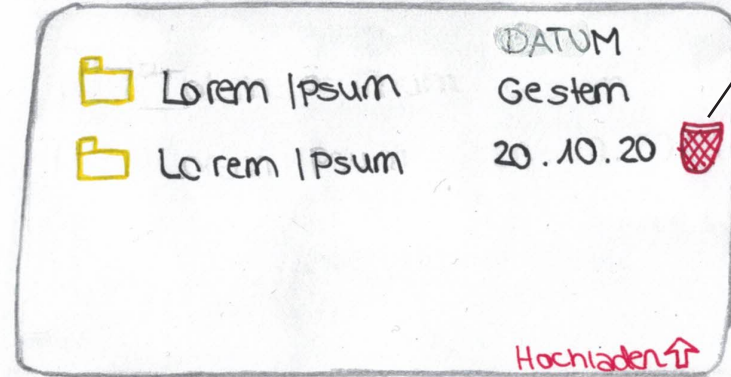 DATUM
Lorem Ipsum Gestern
Lorem Ipsum 20.10.20
Hochladen